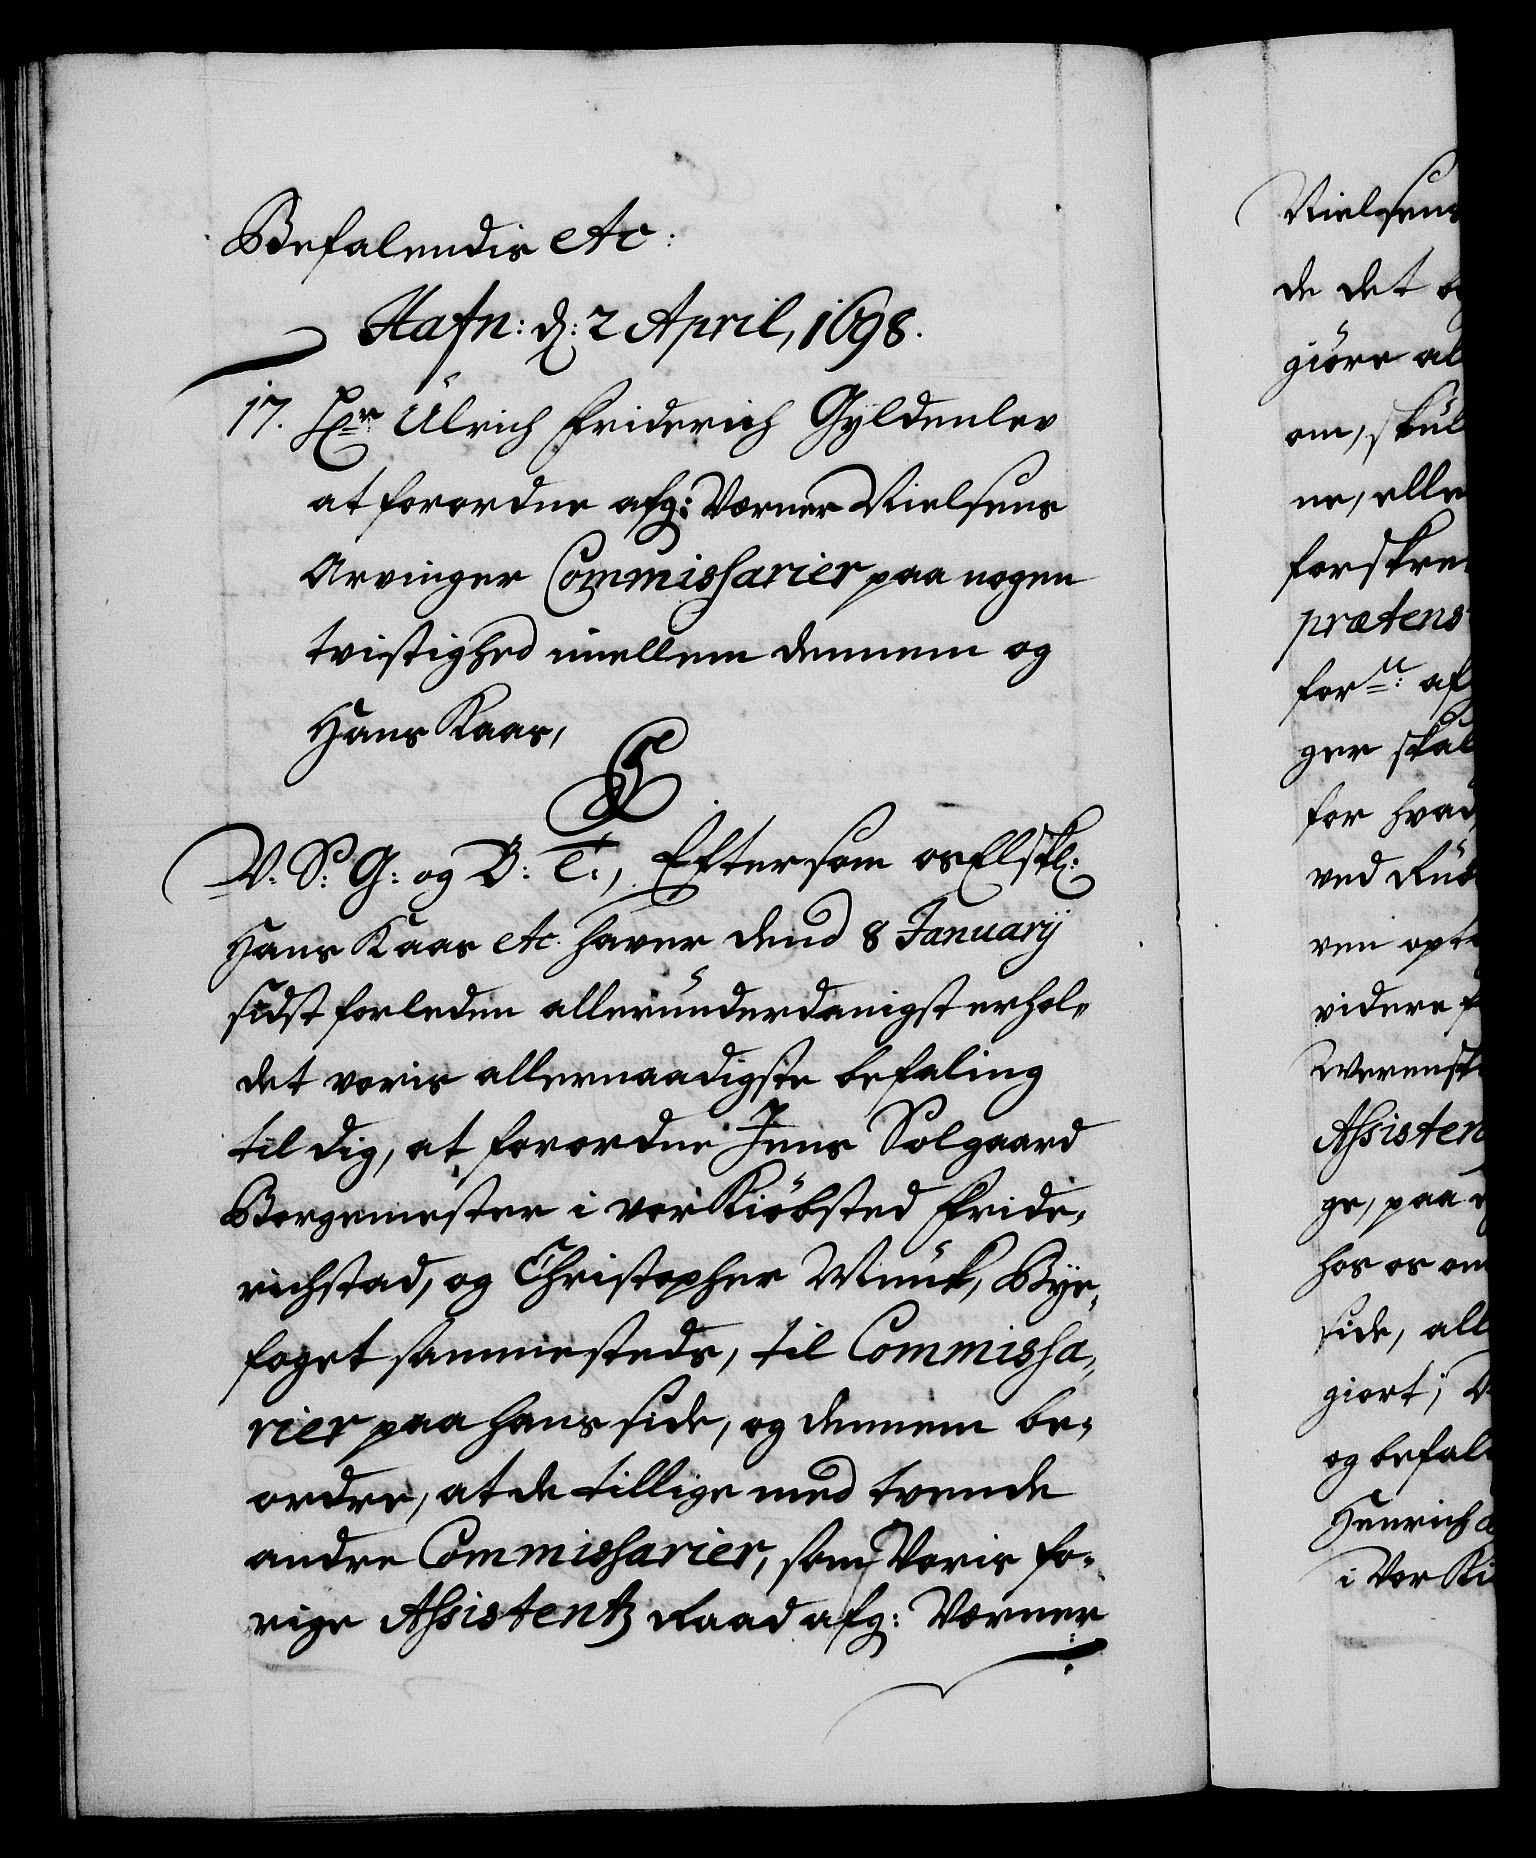 Befalendis etc:
Hafn: d: 2 April, 1698.
17. Hr Ulrich Friderich Gyldenlev
at forordne afg: Værner Nielsens
Arvinger Commissarier paa nogen
tvistighed imellem dennem og
Hans Kaas,
C
V. S: G: og B: T:, Eftersom os Elskl:
Hans Kaas etc. hafver dend 8 Januarij
sidst forleden allerunderdanigst erhol-
det voris allernaadigste befaling
til dig, at forordne Jens Solgaard
Borgemester i vor Kiöbsted Fride-
richstad, og Christopher Munk, Bye-
foget sammesteds, til Commissa-
rier paa hans side, og dennem be-
ordre, at de tillige med tvende
andre Commissarier, som Voris fo-
rige Assistentz Raad afg: Værner
Nielsens
de det
giöre al
om, skul
ne, elle
forskre
prætens
forn: af
ger skal
for hvad
ved Rus
ven opt
videre f
Werensk
Assisten
ge, paa
hos os om
side, all
giort; V
og befal
Henrich
i Vor Ki